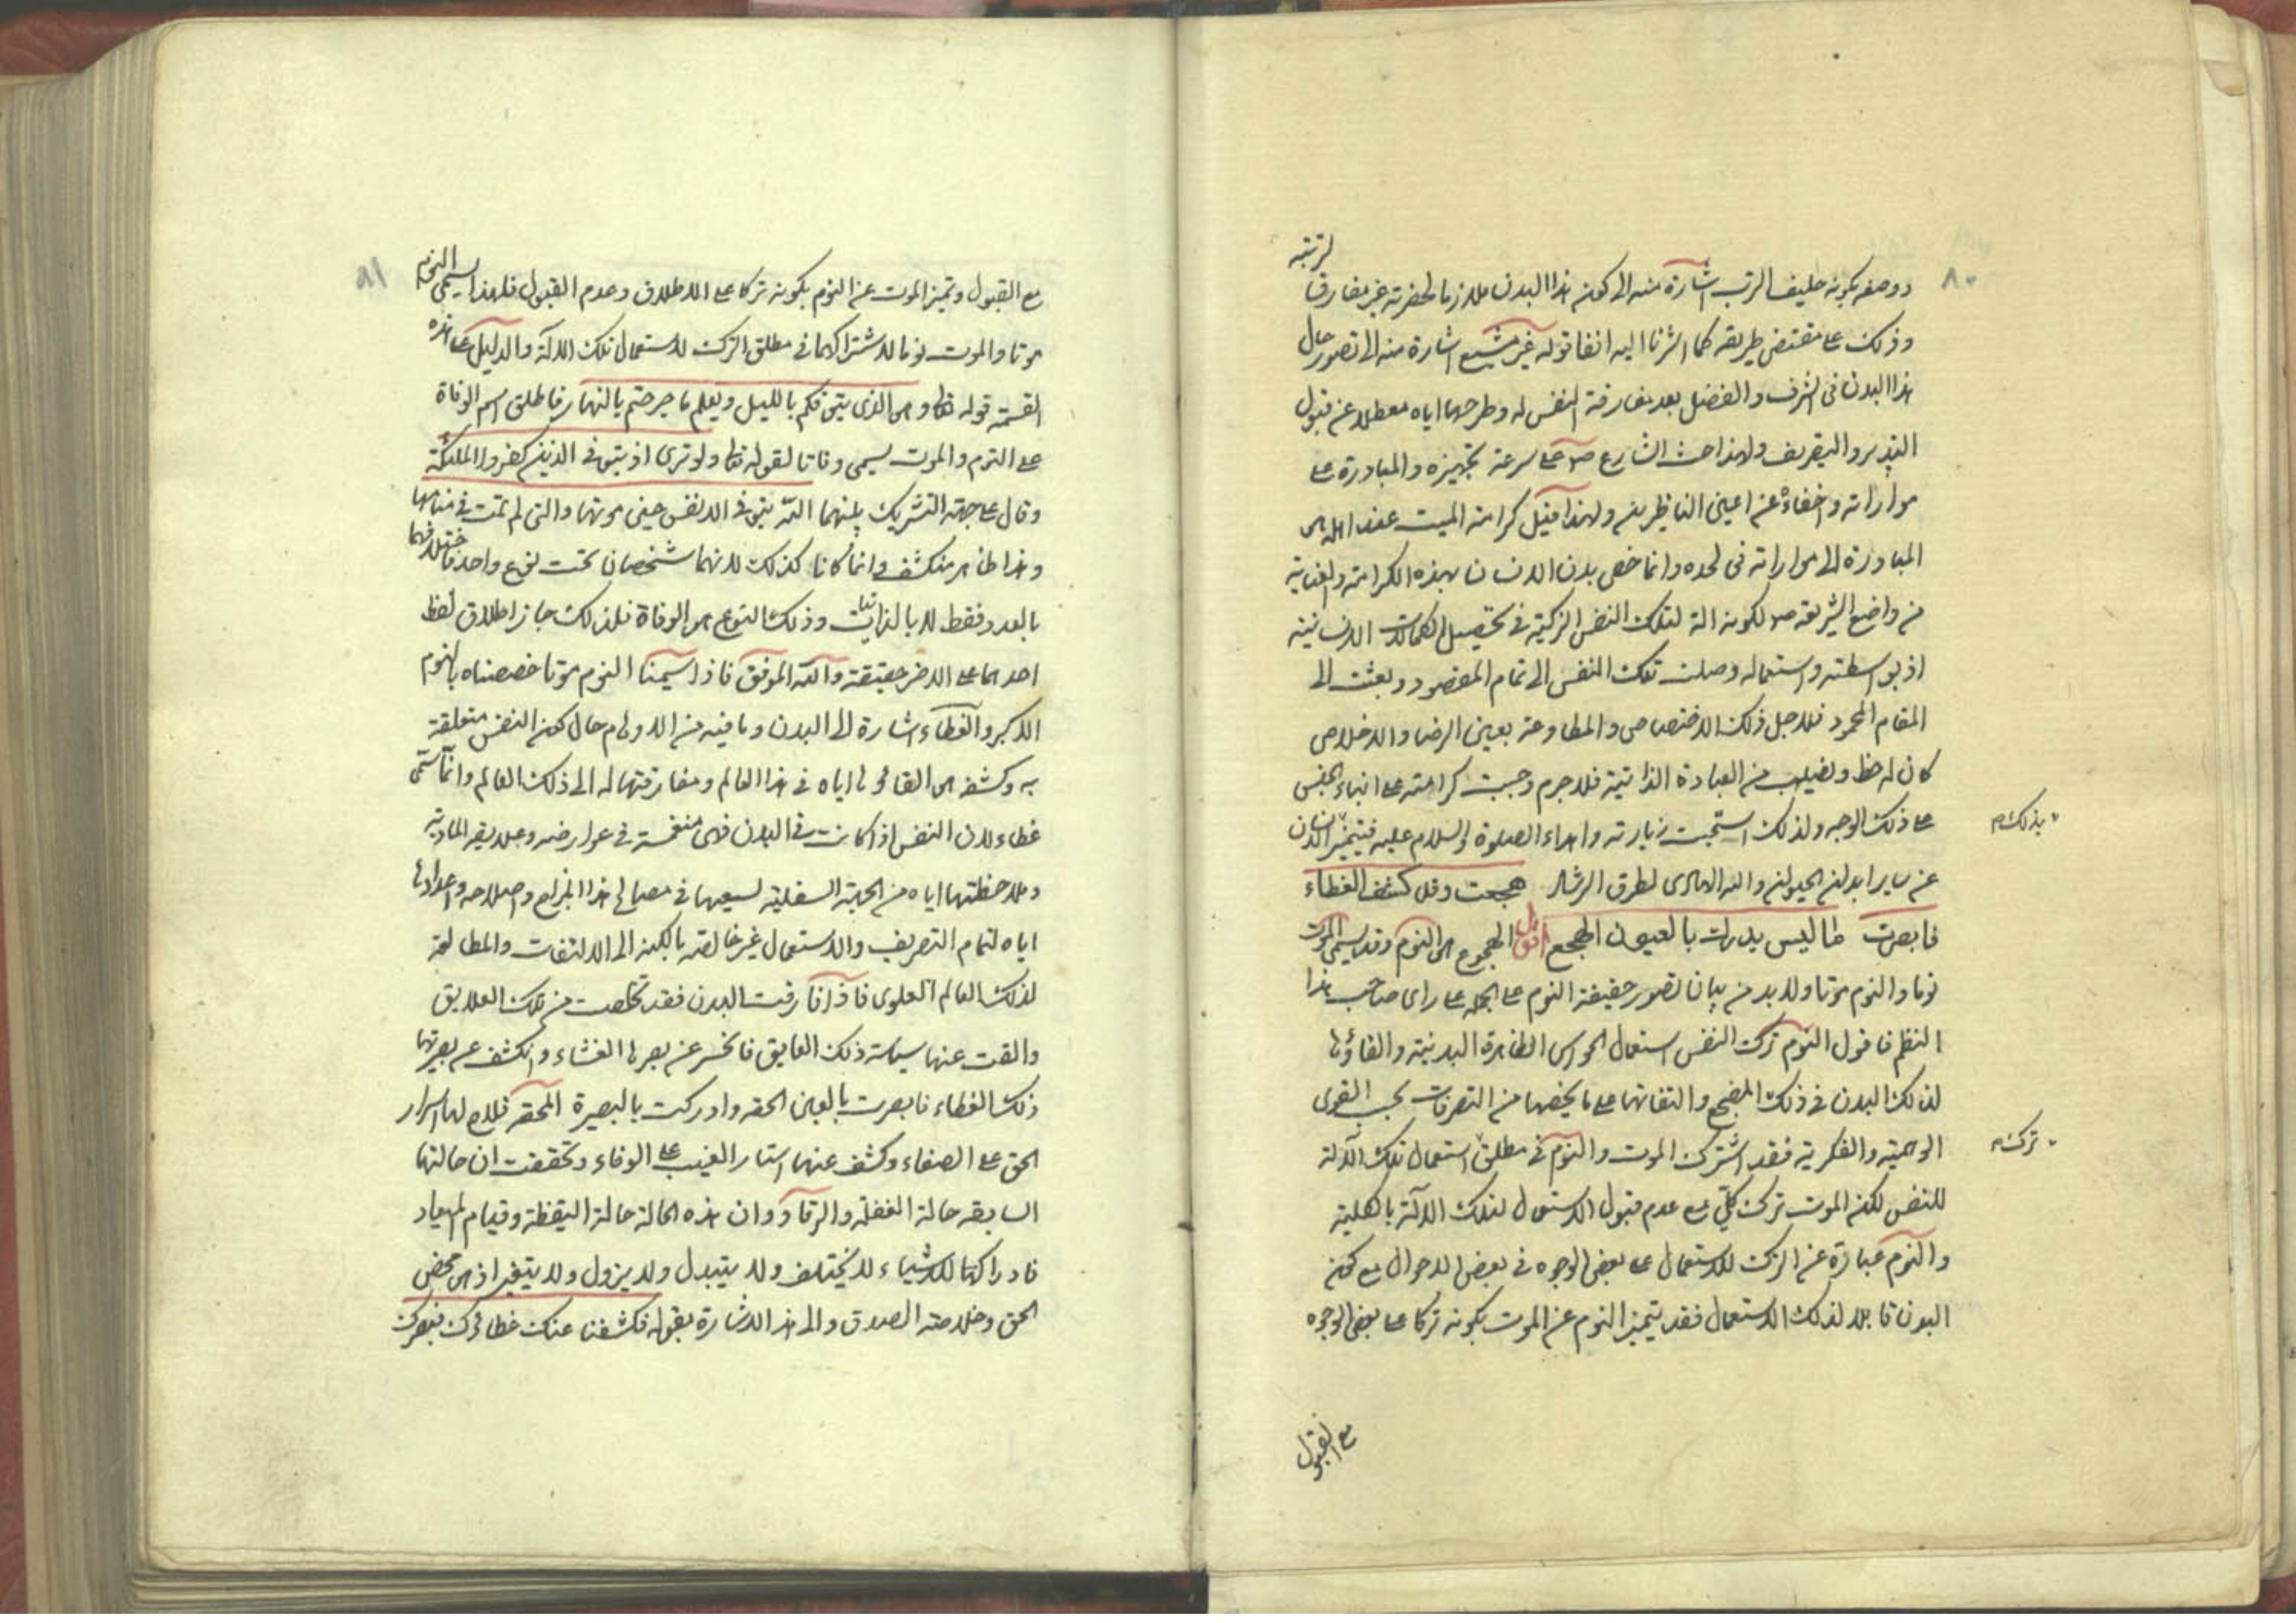 ٨٠
ووصفه بكونه حليف الترب اشارة منه الى كون هذا البدن ملازما لحضرته غير مفارق لتربته
وذلك على مقتضى طريقه كما اشرنا اليه انفا قوله غير مشيع اشارة منه الى تصور حال
هذا البدن فى الشرف والفضل بعد مفارقة النفس له وطرحها اياه معطلا عن قبول
التدبير والتصريف ولهذا حث الشارع ص على سرعة تجهيزه والمبادرة على
مواراته واخفاءه عن اعين الناظرين ولهذا قيل كرامة الميت عند اهله هى
المبادرة الى مواراته فى لحده وانما خص بدن الانسان بهذه الكرامة والعناية
من واضع الشريعة ص لكونه الة لتلك النفس الزكية فى تحصيل الكمالات الانسانية
اذ بواسطته واستعماله وصلت تلك النفس الى تمام المقصود وبعثت الى
المقام المحمود فلاجل ذلك الاختصاص والمطاوعة بعين الرضا والاخلاص
كان له حظ ونصيب من العبادة الذاتية فلا جرم وجبت كرامته على ابناء الجنس
على ذلك الوجه ولذلك استحبت زيارته واهداء الصلوة والسلام عليه فيتميز الانسان
بذلك م
عن ساير ابدان الحيوان والله الهادى لطرق الرشاد هجعت وقد كشف الغطاء
فابصرت ما ليس يدرك بالعيون الهجع اقول الهجوع هو النوم وقد يسمى الموت
نوما والنوم موتا ولا بد من بيان تصور حقيقة النوم على الجملة على راى صاحب هذا
النظم فاقول النوم ترك النفس استعمال الحواس الظاهرة البدنية والقاؤها
لذلك البدن فى ذلك المضجع والتفاتها على ما يخصها من التصرفات بحسب القوى
الوهمية والفكرية فقد اشترك الموت والنوم فى مطلق استعمال تلك الآلة
ترك م
للنفس لكن الموت ترك كلي مع عدم قبول الاستعمال لتلك الالة بالكلية
والنوم عبارة عن الترك للاستعمال على بعض الوجوه فى بعض الاحوال مع كون
البدن قابلا لذلك الاستعمال فقد يتميز النوم عن الموت بكونه تركا على بعض الوجوه
مع القبول
٨١
مع القبول وتميز الموت عن النوم بكونه تركا على الاطلاق وعدم القبول فلهذا يسمى النوم
موتا والموت نوما لاشتراكهما فى مطلق الترك لاستعمال تلك الالة والدليل على هذه
القسمة قوله تعالى وهو الذى يتوفكم بالليل ويعلم ما جرحتم بالنهار فاطلق اسم الوفاة
على النوم والموت يسمى وفاتا لقوله تعالى ولو ترى اذ يتوفى الذين كفروا الملئكة
وقال على جهة التشريك بينهما الله يتوفى الانفس حين موتها والتى لم تمت فى منامها
وهذا ظاهر منكشف وانما كانا كذلك لانهما شخصان تحت نوع واحد فاختلافهما
بالعدد فقط لا بالذاتيات وذلك النوع هو الوفاة فلذلك جاز اطلاق لفظ
احدهما على الاخر حقيقة والله الموفق فاذا سمينا النوم موتا خصصناه بالنوم
الاكبر والغطاء اشارة الى البدن وما فيه من الاوهام حال كون النفس متعلقة
به وكشفه هو القاؤها اياه فى هذا العالم ومفارقتها له الى ذلك العالم وانما سمى
غطاء لان النفس اذا كانت فى البدن فهى منغمسة فى عوارضه وعلايقه المادية
وملاحظتها اياه من الجهة السفلية لسعيها فى مصالح هذا المزاج واصلاحه واعدادها
اياه لتمام التصريف والاستعمال غير خالصة بالكلية الى الالتفات والمطالعة
لذلك العالم العلوى فاذا فارقت البدن فقد تخلصت من تلك العلايق
والقت عنها سياسة ذلك العايق فانحسر عن بصرها الغشاء وانكشف عن بصيرتها
ذلك الغطاء فابصرت بالعين الحقة وادركت بالبصيرة المحقة فلاح لها اسرار
الحق على الصفاء وكشف عنها استار الغيب على الوفاء وتحققت ان حالتها
السابقة حالة الغفلة والرقاد وان هذه الحالة حالة اليقظة وقيام المعاد
فادراكها للاشياء لا يختلف ولا يتبدل ولا يزول ولا يتغير اذ هى محض
الحق وخلاصة الصدق والى هذا الاشارة بقوله فكشفنا عنك غطاءك فبصرك